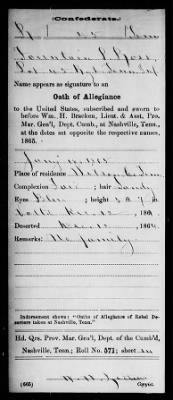 Confederate.
R | 45 | Tenn
Fountain P. Ross
Pvt. 45 Regt Tenn Inf
Name appears as signature to an
Oath of Allegiance
to the United States, subscribed and sworn to
before Wm. H. Bracken, Lieut. & Asst. Pro.
Mar. Gen'l, Dept. Cumb., at Nashville, Tenn.,
at the dates set opposite the respective names,
1865.
Place of residence
Complexion Fair; hair Sandy
Eyes Blue; height 5 ft. 7 in.
186
Deserted 1864
Remarks: No family
Indorsement shows: "Oaths of Allegiance of Rebel Deserters
taken at Nashville, Tenn."
Hd. Qrs. Prov. Mar. Gen'l, Dept. of the Cumb'd,
Nashville, Tenn.; Roll No. 571; sheet
(665)
Copyist.